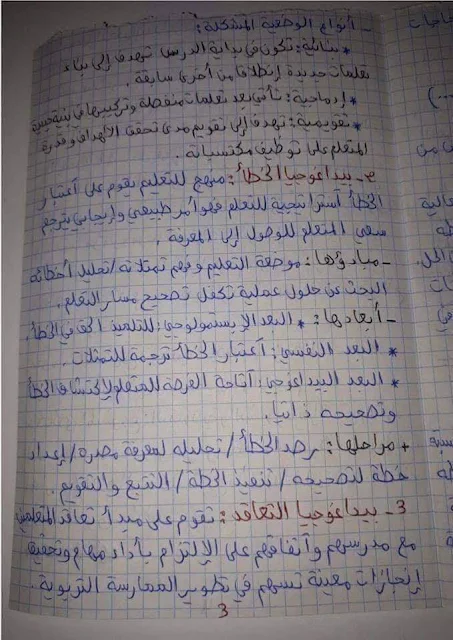 - أنواع الوضعية المشكلة:
* بنائية: تكون في بداية الدرس تهدف إلى بناء
تعلمات جديدة إنطلاقا من أخرى سابقة.
* إدماجية: تأتي بعد تعلمات منفصلة وتركيبها في بنية
* تقويمية: تهدف إلى تقويم مدى تحقق الأهداف وقدرة
المتعلم على توظيف مكتسباته.
بيداغوجيا الخطأ: منهج للتعليم يقوم على أعتبار
الخطأ أستراتيجية للتعلم فهو أمر طبيعي وإيجابي يترجم
سعي المتعلم للوصول إلى المعرفة.
- مبادؤها: التعليم وفهم تمثلاته/تحليل أخطائه
البحث عن حلول عملية تكفل تصحيح مسار التعلم.
- أبعادها: * البعد الإبستمولوجي: للتلميذ الحق في الخطأ.
* البعد النفسي: أعتبار الخطأ ترجمة للتمثلات.
* البعد البيداغوجي: أتاحة الفرصة للمتعلم لإكتشاف الخطأ
وتصحيحه ذاتيا.
+ مراحلها: رصد الخطأ/تحليله لمعرفة مصدره/إعداد
خطة لتصحيحه/تنفيذ الخطة/التتبع والتقويم.
3- بيداغوجيا التعاقد: تقوم على مبدأ تعاقد المتعلمين
مع مدرسهم وأتفاقهم على الإلتزام بأداء مهام وتحقيق
إنجازات معينة تسهم في تطوير الممارسة التربوية.
3